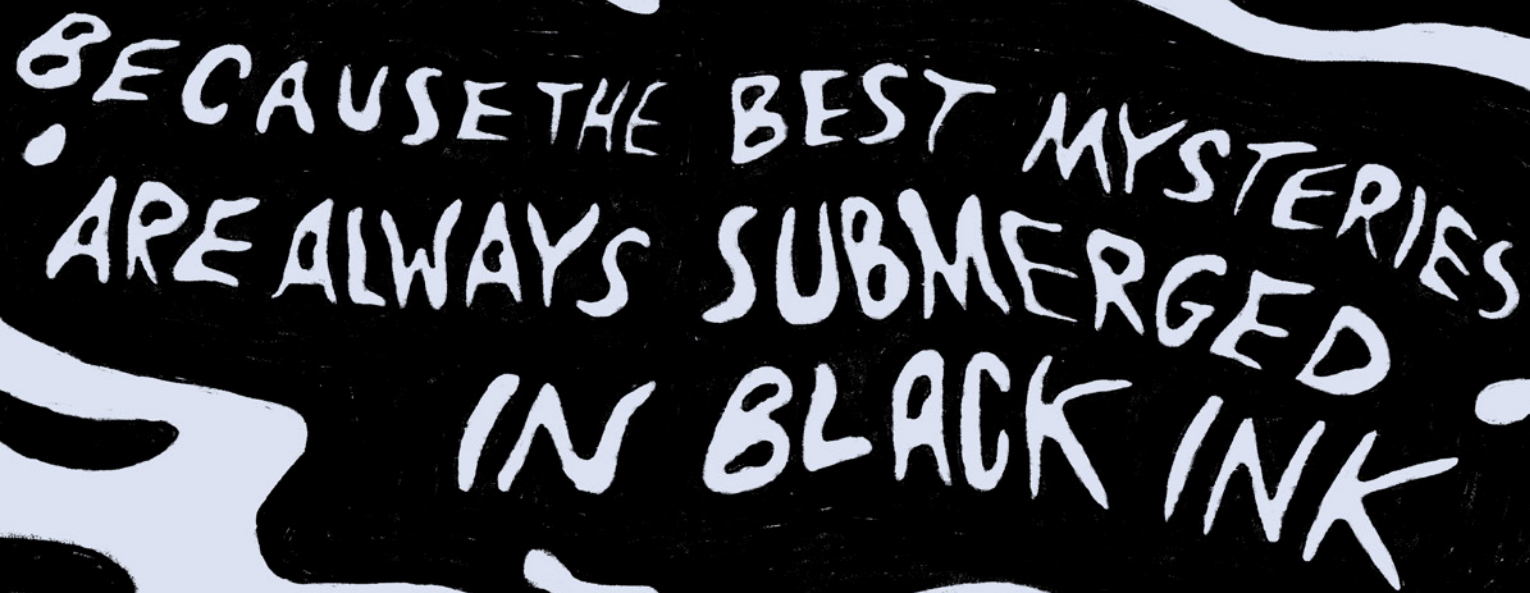 BECAUSE THE BEST MYSTERIES
ARE ALWAYS SUBMERGED
IN BLACK INK